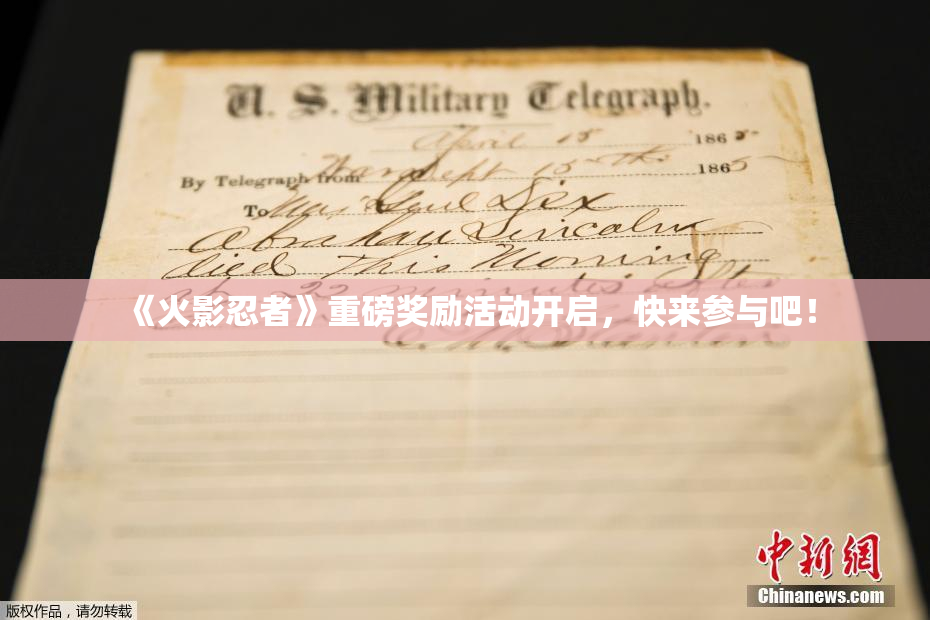 U. S. Military Telegraph.
April 15 1865
By Telegraph from War Dept 15th 1865
To Maj Genl Dix
Abraham Lincoln
died This Morning
at 22 minutes after
《火影忍者》重磅奖励活动开启，快来参与吧！
E. M. Stanton
中新网
Chinanews.com
版权作品，请勿转载